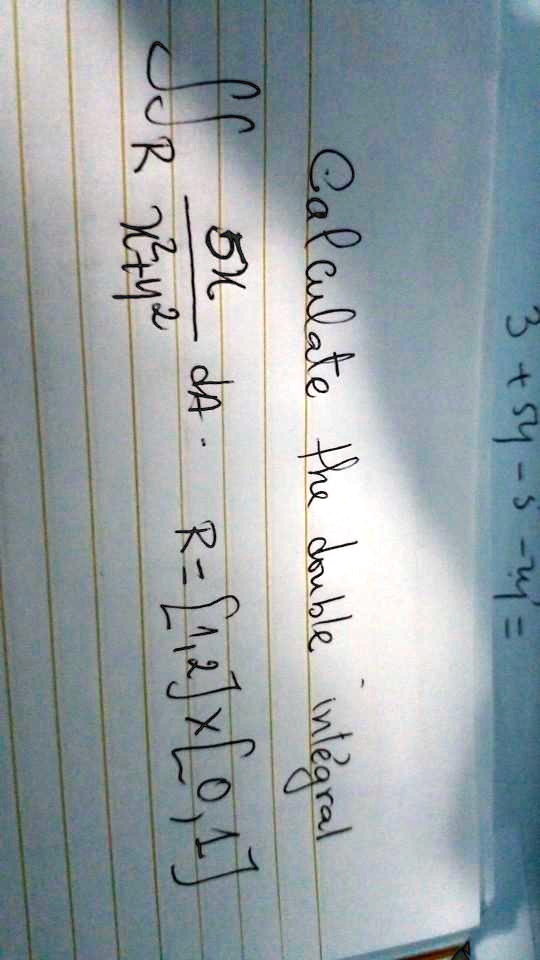 3 + 5y - 5 - 2y =
Calculate the double intégral
∬_R 5x/(x²+y²) dA. R = [1,2] × [0,1]